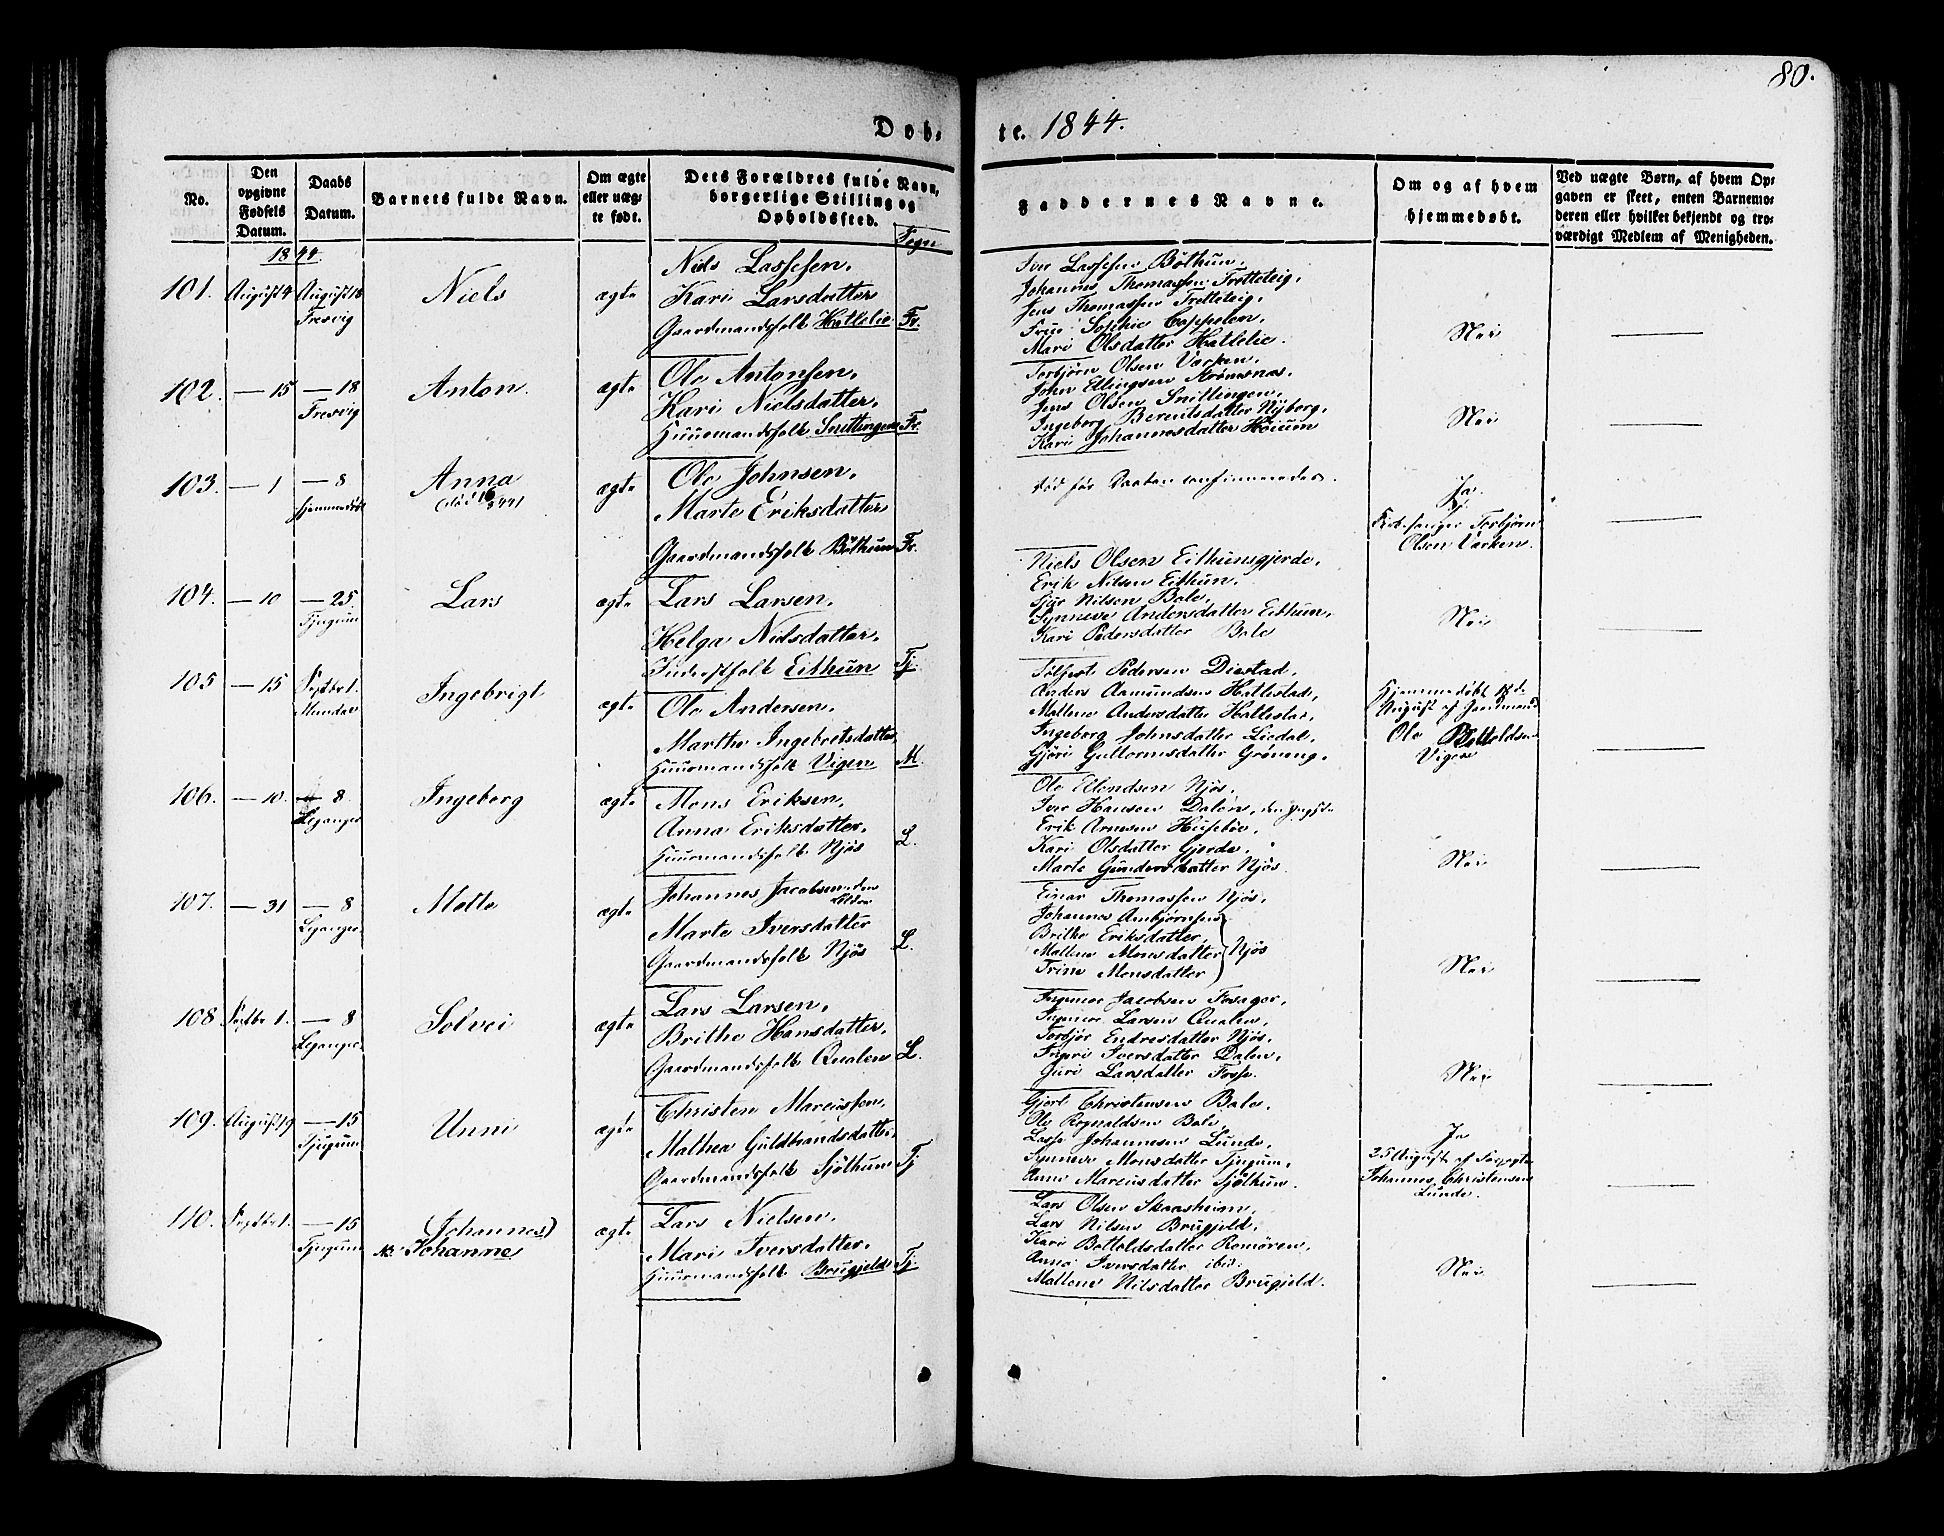 80.
Døb-
te. 1844.
No.
Den opgivne Fødsels Datum.
Daabs Datum.
Barnets fulde Navn.
Om ægte eller uægte født.
Dets Forældres fulde Navn, borgerlige Stilling og Opholdssted.
Sogn
Faddernes Navne.
Om og af hvem hjemmedøbt.
Ved uægte Børn, af hvem Opgaven er skeet, enten Barnemoderen eller hvilket bekjendt og troværdigt Medlem af Menigheden.
1844.
101. August 4 August 18 Fresvig
Niels
ægte
Niels Lassesen,
Kari Larsdatter
Gaardmandsfolk Hatlelie. Fr.
Iver Lassesen Bøthun,
Johannes Thomassen Tretteteig,
Jens Thomassen Tretteteig,
Frue Sophie Cappelen,
Mari Olsdatter Hatlelie.
Nei
102. — 15 — 18 Fresvig
Anton.
ægte
Ole Antonsen,
Kari Nielsdatter,
Huusmandsfolk Snitlingen Fr.
Torbjørn Olsen Varken,
John Ellingsen
Jens Olsen Snitlingen,
Ingeborg Berentsdatter Nyborg,
Kari Johannesdatter Høium
Nei
103. — 1 — 8 Hjemmedøbt
Anna
ægte
Ole Johnsen,
Marte Eriksdatter
Gaardmandsfolk Bøthun Fr.
død før Daaben confirmeredes.
Ja.
Kirkesanger Torbjørn
Olsen Varken.
104. — 10 — 25 Tjugum
Lars
ægte
Lars Larsen,
Helga Nielsdatter,
Inderstfolk Eithun Tj.
Niels Olsen Eithunsgjerde,
Erik Nilsen Eithun,
Sjur Nilsen Bale,
Synneve Andersdatter Eithun,
Kari Pedersdatter Bale
Nei
105 — 15 Septbr 1. Mundal
Ingebrigt
ægte
Ole Andersen,
Marthe Ingebretsdatter
Huusmandsfolk Vigen M.
Tolfest Pedersen Diestad,
Anders Aamundsen Hatlestad,
Mallene Andersdatter Hatlestad,
Ingeborg Johnsdatter Liedal,
Gjøri Guttormsdatter Grøning,
Hjemmedøbt 18de
August af
Ole Bottoldsen
Vigen
106. — 10. — 8 Leganger
Ingeborg
ægte
Mons Eriksen,
Anna Eriksdatter,
Huusmandsfolk Njøs L.
Ole Ellendsen Njøs,
Iver Hansen Dalen, den yngste
Erik Arnesen Husebøe,
Kari Olsdatter Gjerde,
Marte Gundersdatter Njøs.
Nei
107. — 31 — 8 Leganger
Mette
ægte
Johannes Jacobsen den ældre
Marte Iversdatter
Gaardmandsfolk Njøs L.
Einar Thomassen Njøs,
Johannes Ambjørnsen
Brithe Eriksdatter,
Mallene Monsdatter Njøs
Trine Monsdatter
Nei
108 Septbr 1. — 8 Leganger
Solvei
ægte
Lars Larsen,
Brithe Hansdatter,
Gaardmandsfolk Qualen L.
Ingmor Jacobsen Fosager,
Ingmor Larsen Qualen,
Torbjør Endresdatter Njøs,
Ingri Iversdatter Dalen,
Guri Larsdatter Fosse.
Nei
109. August 19 — 15 Tjugum
Unni
ægte
Christen Marcussen,
Mathea Guldbrandsdatter,
Gaardmandsfolk Sjøthun Tj
Gjert Christensen Bale,
Ole Rognaldsen Bale,
Lasse Johannesen Lunde,
Synneve Monsdatter Tjugum,
Anna Marcusdatter Sjøthun.
Ja
25 August af
Johannes Christensen
Lunde.
110. Septbr 1. — 15 Tjugum
(Johannes)
NB Johanne
ægte
Lars Nielsen,
Mari Iversdatter,
Huusmandsfolk Brugjeld Tj.
Lars Olsen Skaasheim,
Lars Nilsen Brugjeld,
Kari Bottoldsdatter Romøren,
Anna Iversdatter ibid.
Mallene Nilsdatter Brugjeld.
Nei